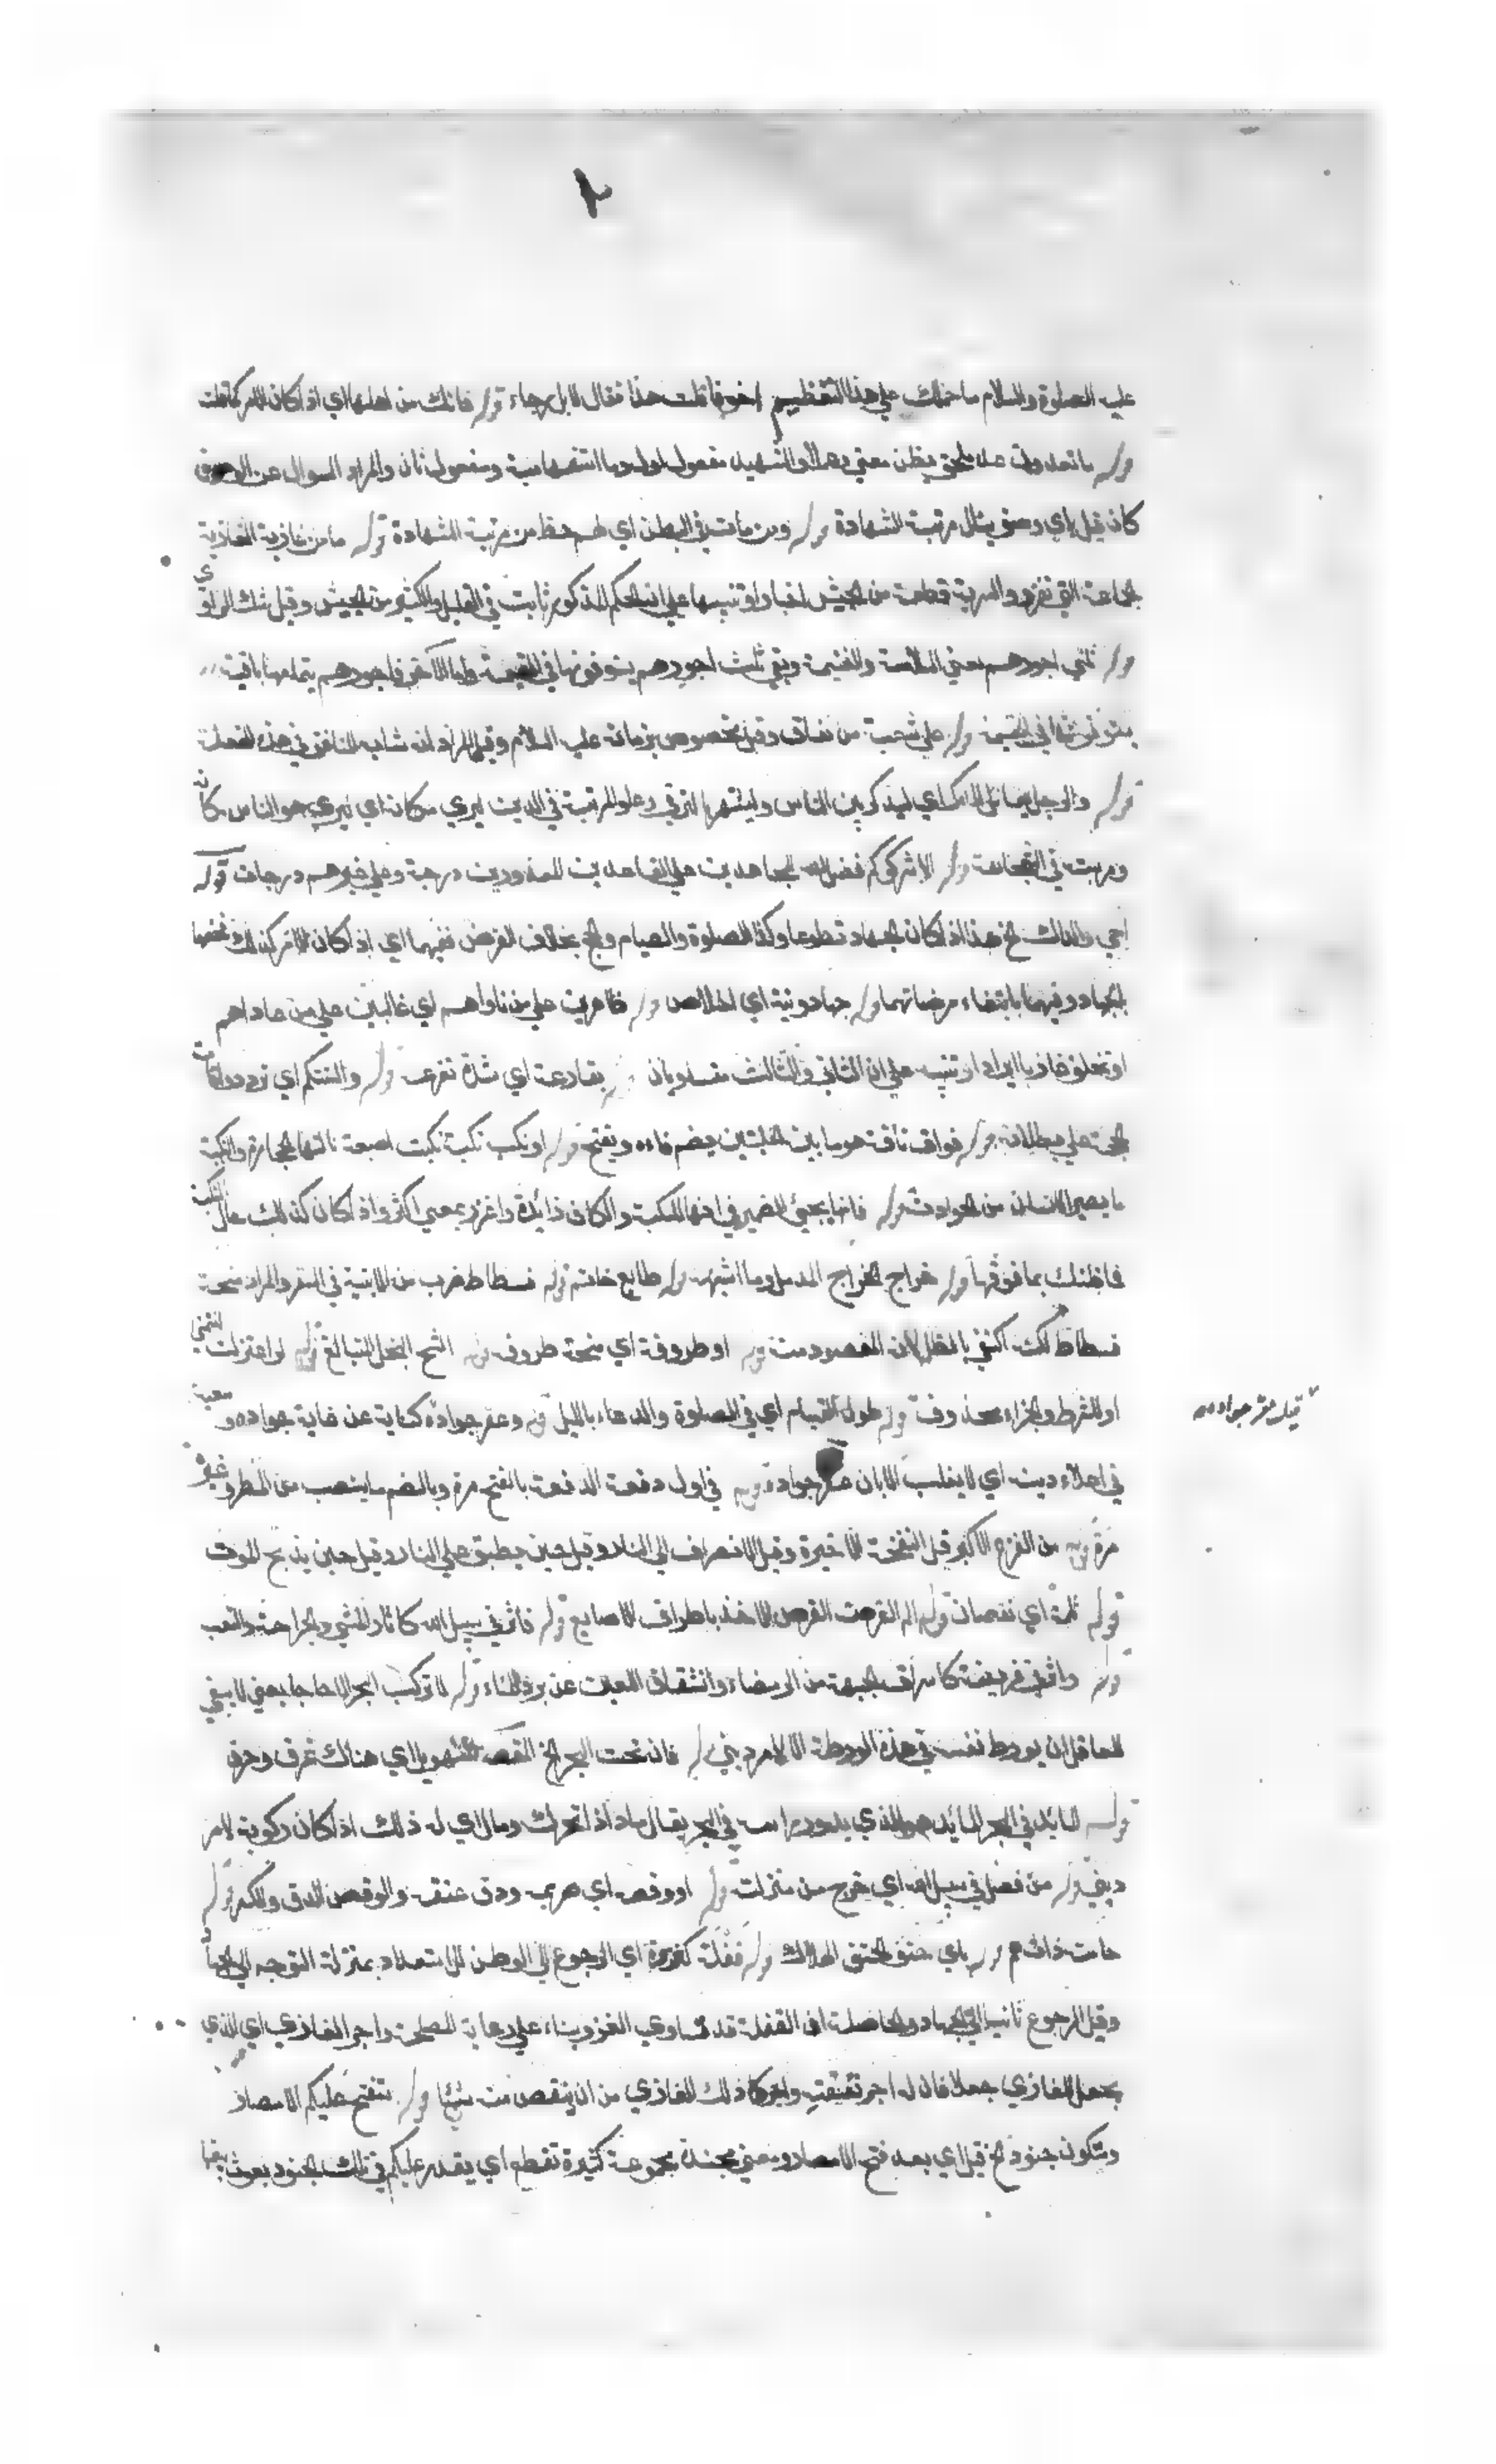 عليه الصلوة والسلام ما حملك علي هذا التعظيم اخوفا قلت هذا فقال لا بل رجاء قوله فانك من اهلها اي اذا كان الامر كما قلت
قوله ما تعدون عد ملحق بظن معني وعملا والشهيد مفعول اول وما استفهامية ومفعول ثان والمراد السوال عن الوصف
كان قيل باي وصف ينال مرتبة الشهادة قوله ومن مات في البطن اي لهم حظ من مرتبة الشهادة قوله ما من غازية الغازية
الجماعة التي تغزو والسرية قطعة من الجيش اخبارا وتنبيها علي ان الحكم المذكور ثابت في القليل والكثير من الجيش وقيل شك الراوي
قوله ثلثي اجورهم يعني السلامة والغنيمة وبقي ثلث اجورهم يستوفونها في القيمة واما الآخر فاجورهم بتمامها باقية
يستوفونها في القيمة قوله علي شعبة من نفاق وقيل مخصوص بزمانه عليه السلام وقيل المراد انه شابه المنافق في هذه الخصلة
قوله والرجل يقاتل للذكر اي ليذكر بين الناس وليشتهر بالترقي وعلو المرتبة في الدين ليري مكانه اي ليري هو الناس مكانه
ومرتبته في الشجاعة قوله فضل الله المجاهدين علي القاعدين المعذورين درجة وعلي غيرهم درجات قوله
احي والداك الخ هذا اذا كان الجهاد تطوعا وكذا الصلوة والصيام والحج بخلاف الفرض ففيهما اي اذا كان الامر كذلك
فجاهد وفيهما بابتغاء مرضاتهما قوله جهاد ونية اي اخلاص قوله ظاهرين علي من ناواهم اي غالبين علي من عاداهم
او يخلف غازيا ايراد او تنبيه علي ان الثاني والثالث متساويان قوله بقارعة اي شدة تقرعه قوله والسنتكم اي
الحجة علي بطلانه قوله فواق ناقة هو ما بين الحلبتين بضم فاءه ويفتح قوله او نكب نكبة نكبت اصبعه نالتها الحجارة والنكبة
ما يصيب الانسان من الحوادث قوله فانها تجئ الضمير في انها للنكبة والكاف زائدة واغزر بمعني اكثر واذا كان كذلك حال النكبة
فما ظنك بما فوقها قوله خراج الخراج الدمل وما اشبهه قوله طابع خاتم قوله فسطاط ضرب من الابنية في السفر والمراد منحة
فسطاط اكتفي بالظل لانه المقصود منه قوله او طروقة اي منحة طروقة قوله الشح البخل البالغ قوله لو اعتزلت للتمني
او للشرط والجزاء محذوف قوله طول القيام اي في الصلوة والدعاء بالليل قوله وعقر جواده كناية عن غاية جواده وسعيه
في اعلاء دينه اي لا يغلب الا بان عقر جواده قوله في اول دفعة الدفعة بالفتح مرة وبالضم ما ينصب من المطر وغيره
مرة قوله من الفزع الاكبر قيل النفخة الاخيرة وقيل الانصراف الي النار وقيل حين يطبق علي النار وقيل حين يذبح الموت
قوله ثلمة اي نقصان قوله الم القرصة القرص الاخذ باطراف الاصابع قوله فاثر في سبيل الله كاثار المشي والجراحة والتعب
قوله واثر في فريضة كاحتراق الجبهة من الرمضاء وانشقاق القدمين عن برد الماء قوله لا تركب البحر الا حاجا يعني لا ينبغي
للعاقل ان يورط نفسه في هذه الورطة الا لامر ديني قوله فان تحت البحر الخ القصد التهويل اي هناك غرق وحرق
قوله المائد في البحر المائد هو الذي يدور راسه في البحر يقال ماد اذا تحرك ومال اي له ذلك اذا كان ركوبه لامر
ديني قوله من فصل في سبيل الله اي خرج من منزله قوله او وقصه اي صرعه ودق عنقه والوقص الدق والكسر قوله
هامة ذات سم قوله باي حتف الحتف الهلاك قوله قفلة كغزوة اي الرجوع الي الوطن للاستعداد بمنزلة التوجه الي
وقيل الرجوع ثانيا الي الجهاد والحاصل ان القفلة قد تساوي الغزو بناء علي رعاية المصلحة واجر الغازي اي الذي
يجعل للغازي جعلا فان له اجر نفقته واجر ذلك الغازي من ان ينقص منه شيئا قوله ستفتح عليكم الامصار
وستكون جنود الخ قيل اي بعد فتح الامصار ومعني مجندة مجموعة كثيرة تقطع اي يقدر عليكم في تلك الجنود بعوث
قيل عقر جواده